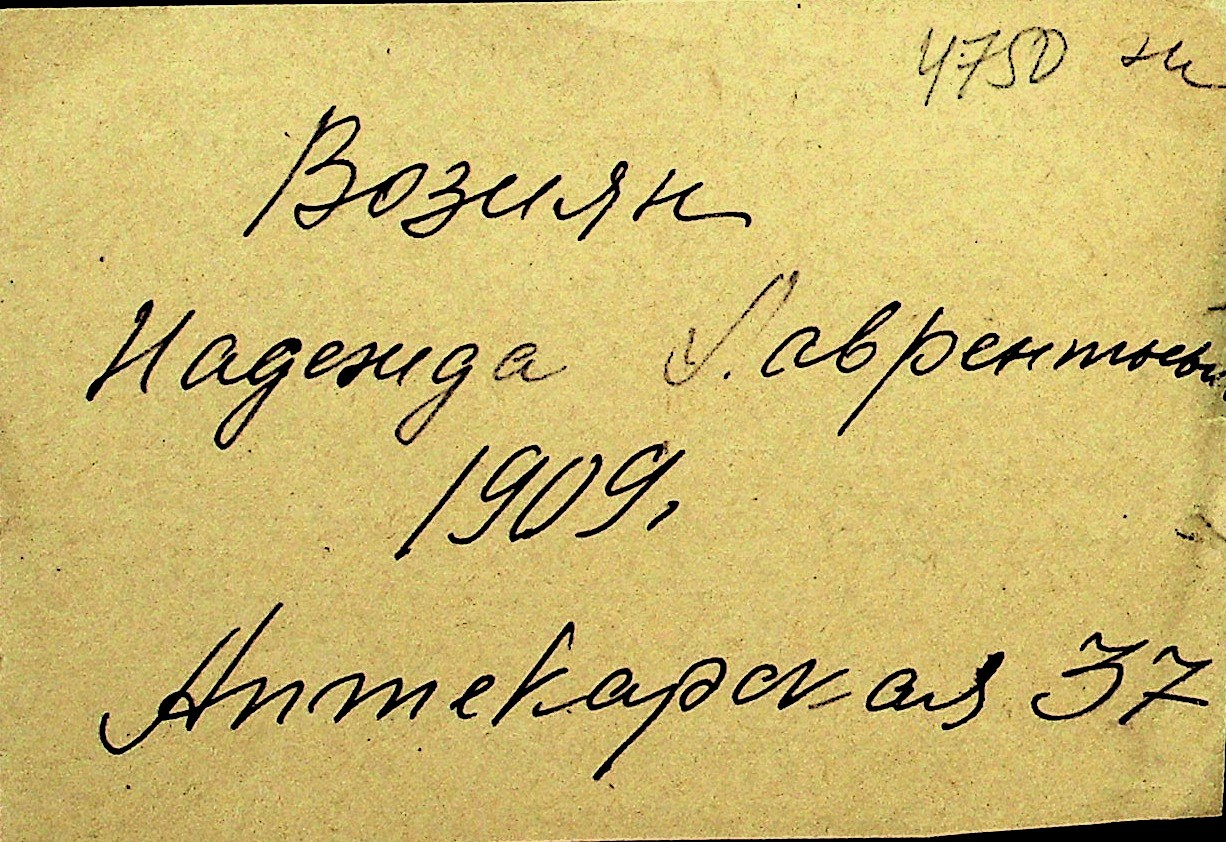 4750 н
Возиян
Надежда Лаврентьев
1909г
Аптекарская 37